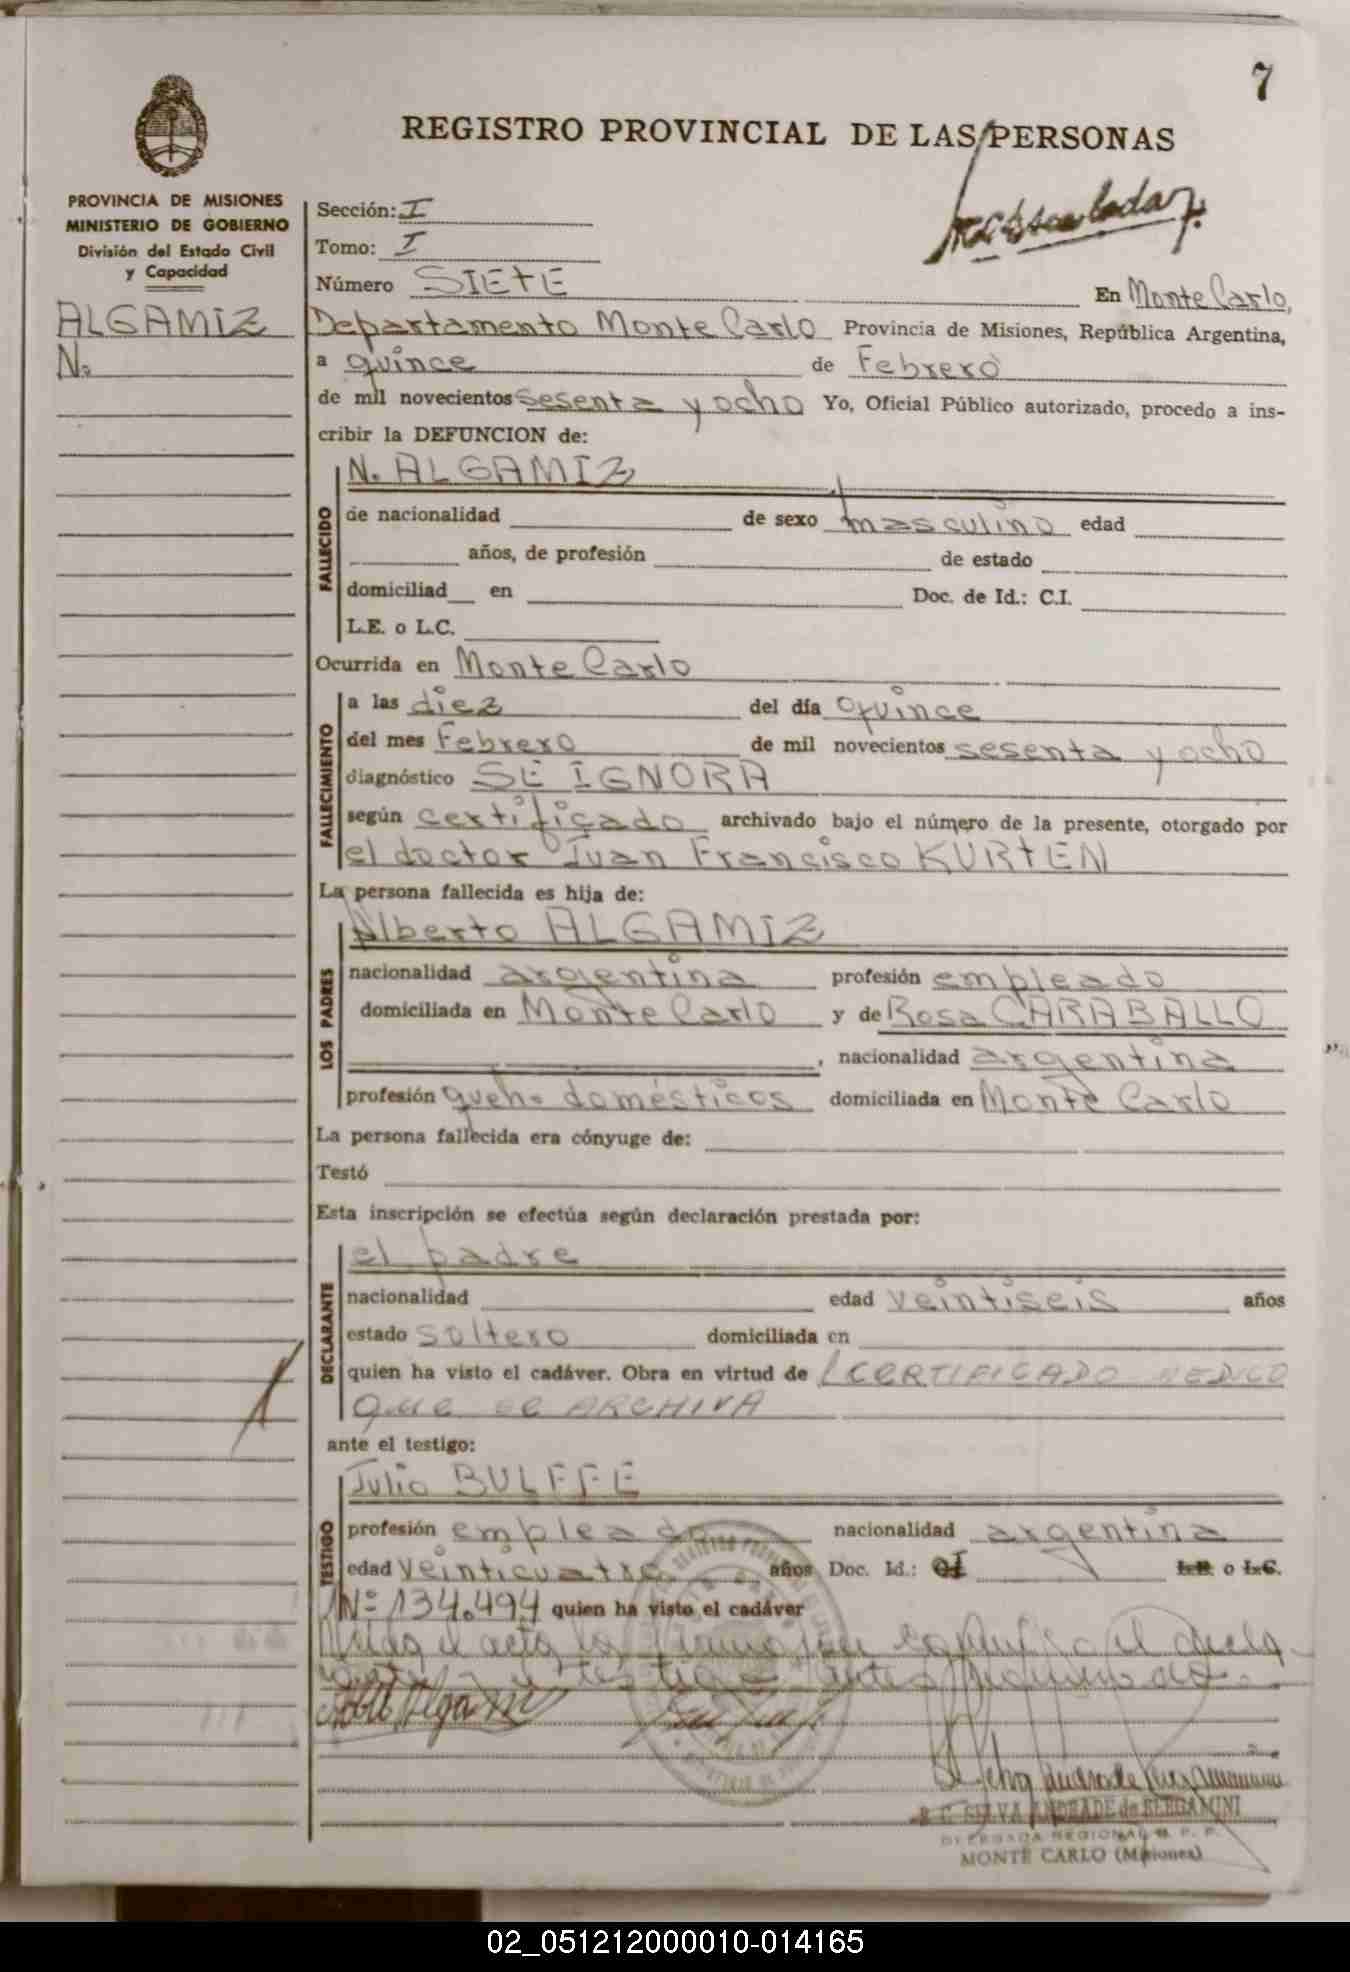 7
REGISTRO PROVINCIAL DE LAS PERSONAS
PROVINCIA DE MISIONES
MINISTERIO DE GOBIERNO
División del Estado Civil
y Capacidad
ALGAMIZ
N.
Sección: I
Tomo: I
Número SIETE En Monte Carlo,
Departamento Monte Carlo Provincia de Misiones, República Argentina,
a quince de Febrero
de mil novecientos sesenta y ocho Yo, Oficial Público autorizado, procedo a ins-
cribir la DEFUNCION de:
FALLECIDO
N. ALGAMIZ
de nacionalidad de sexo masculino edad
años, de profesión de estado
domiciliad en Doc. de Id.: C.I.
L.E. o L.C.
Ocurrida en Monte Carlo
FALLECIMIENTO
a las diez del día quince
del mes Febrero de mil novecientos sesenta y ocho
diagnóstico SE IGNORA
según certificado archivado bajo el número de la presente, otorgado por
el doctor Juan Francisco KURTEN
La persona fallecida es hija de:
LOS PADRES
Alberto ALGAMIZ
nacionalidad argentina profesión empleado
domiciliada en Monte Carlo y de Rosa CARABALLO
, nacionalidad argentina
profesión queh. domésticos domiciliada en Monte Carlo
La persona fallecida era cónyuge de:
Testó
Esta inscripción se efectúa según declaración prestada por:
DECLARANTE
el padre
nacionalidad edad veintiseis años
estado soltero domiciliada en
quien ha visto el cadáver. Obra en virtud de CERTIFICADO MEDICO
QUE SE ARCHIVA
ante el testigo:
TESTIGO
Julio BULFFE
profesión empleado nacionalidad argentina
edad veinticuatro años Doc. Id.: CI L.E. o L.C.
Nº 134.494 quien ha visto el cadáver
el acta la firman
el testigo antes
B. C. SELVA ANDRADE de BERGAMINI
DELEGADA REGIONAL R. P. P.
MONTE CARLO (Misiones)
02_051212000010-014165